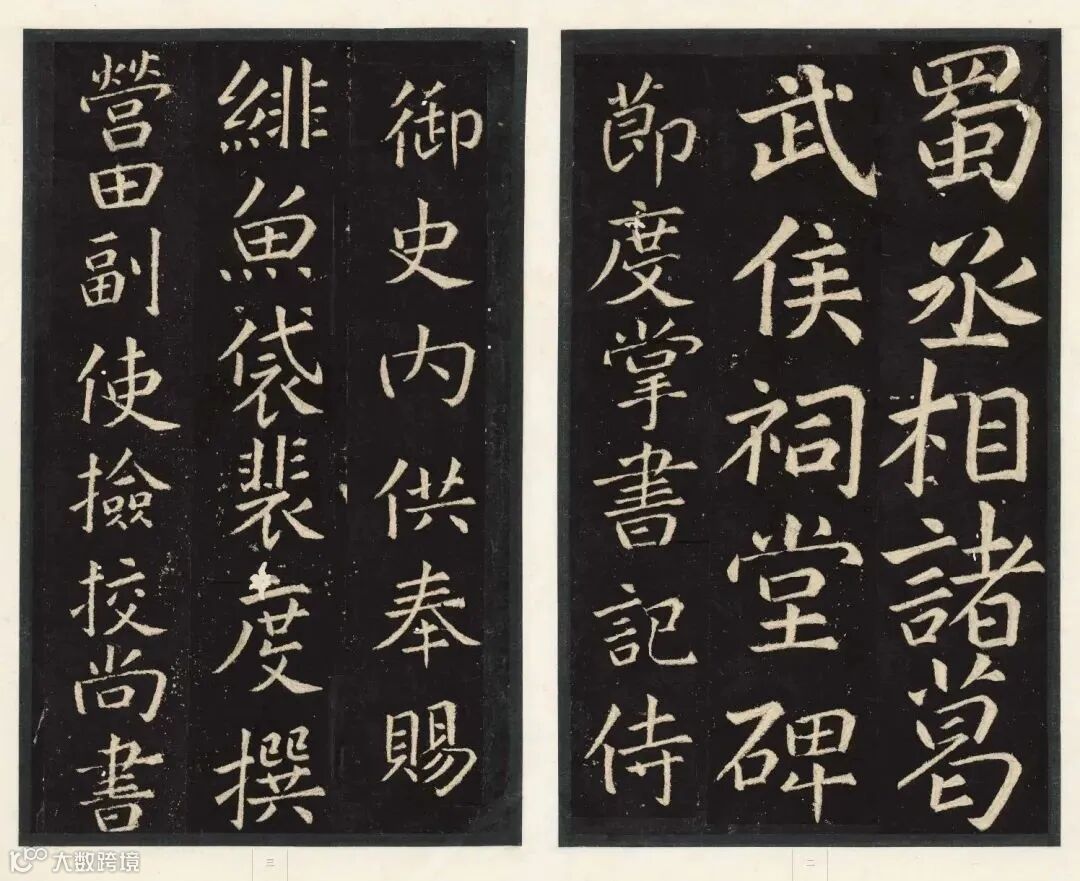 蜀丞相諸葛
武侯祠堂碑
節度掌書記侍
御史内供奉賜
緋魚袋裴度撰
營田副使撿挍尚書
三
二
一
大数跨境